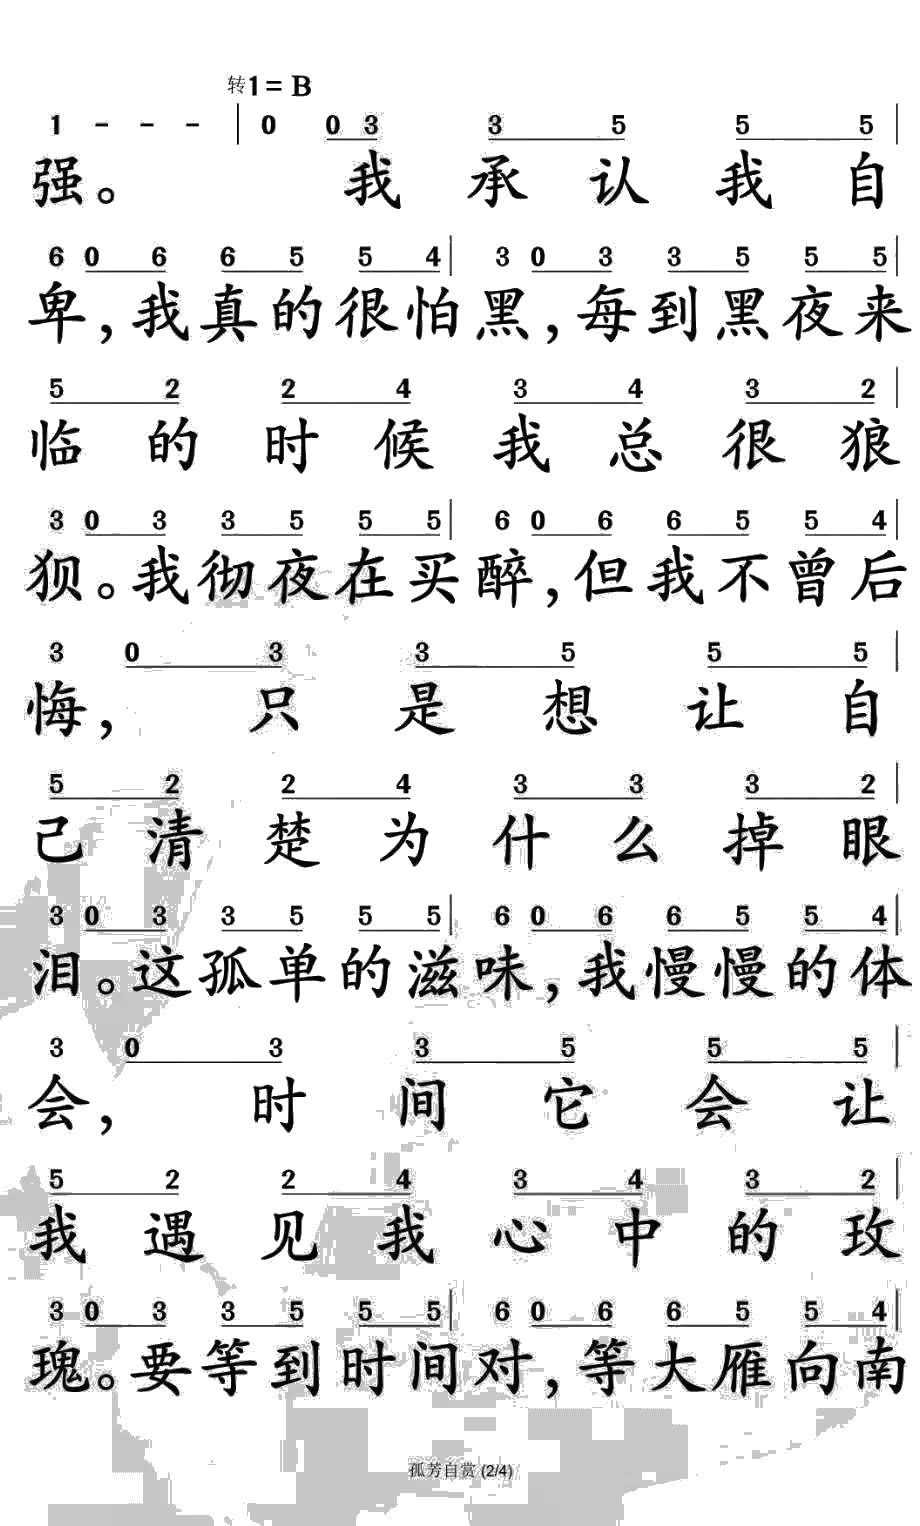 转1= B
1 - - - | 0 0 3 3 5 5 5 |
强。 我 承 认 我 自
6 0 6 6 5 5 4 | 3 0 3 3 5 5 5 |
卑，我真的很怕黑，每到黑夜来
5 2 2 4 3 4 3 2 |
临 的 时 候 我 总 很 狼
3 0 3 3 5 5 5 | 6 0 6 6 5 5 4 |
狈。我彻夜在买醉，但我不曾后
3 0 3 3 5 5 5 |
悔， 只 是 想 让 自
5 2 2 4 3 3 3 2 |
己 清 楚 为 什 么 掉 眼
3 0 3 3 5 5 5 | 6 0 6 6 5 5 4 |
泪。这孤单的滋味，我慢慢的体
3 0 3 3 5 5 5 |
会， 时 间 它 会 让
5 2 2 4 3 4 3 2 |
我 遇 见 我 心 中 的 玫
3 0 3 3 5 5 5 | 6 0 6 6 5 5 4 |
瑰。要等到时间对，等大雁向南
孤芳自赏 (2/4)